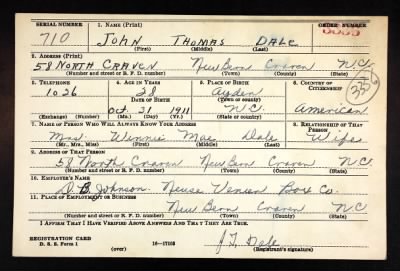 SERIAL NUMBER 1. NAME (Print) ORDER NUMBER
710 JOHN THOMAS DALE
(First) (Middle) (Last)
2. ADDRESS (Print)
58 NORTH CRAVEN NEW BERN CRAVEN N.C.
(Number and street or R. F. D. number) (Town) (County) (State)
3. TELEPHONE 4. AGE IN YEARS 5. PLACE OF BIRTH 6. COUNTRY OF CITIZENSHIP
1026 28 Ayden
DATE OF BIRTH (Town or county)
Oct. 21 1911 N.C. American
(Exchange) (Number) (Mo.) (Day) (Yr.) (State or country)
7. NAME OF PERSON WHO WILL ALWAYS KNOW YOUR ADDRESS 8. RELATIONSHIP OF THAT PERSON
Mrs. Winnie Mae Dale Wife
(Mr., Mrs., Miss) (First) (Middle) (Last)
9. ADDRESS OF THAT PERSON
58 North Craven New Bern Craven N.C.
(Number and street or R. F. D. number) (Town) (County) (State)
10. EMPLOYER'S NAME
D. B. Johnson. Neuse Veneer Box Co.
11. PLACE OF EMPLOYMENT OR BUSINESS
New Bern Craven N.C
(Number and street or R. F. D. number) (Town) (County) (State)
I AFFIRM THAT I HAVE VERIFIED ABOVE ANSWERS AND THAT THEY ARE TRUE.
REGISTRATION CARD
D. S. S. Form 1 (over) 16—17105 J. T. Dale
(Registrant's signature)